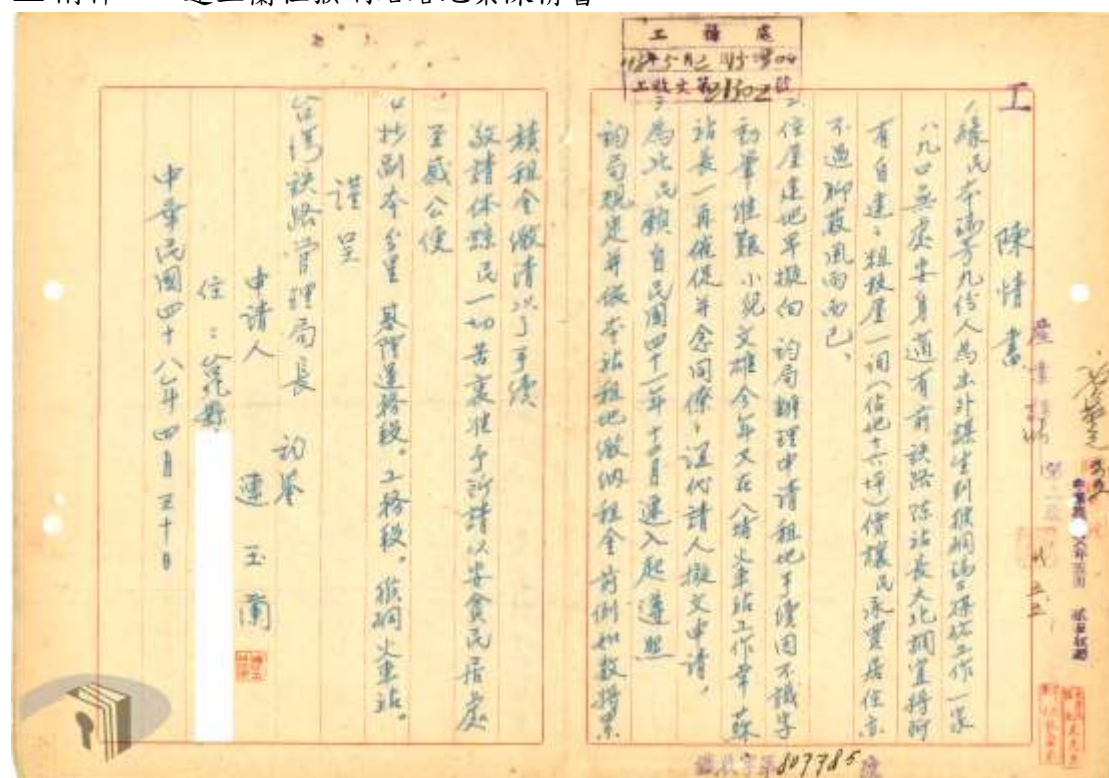 陳情書
1.緣民本瑞芳九份人為出外謀生到猴硐瑞三礦坑工作一家
八九口無處安身適有前鐵路陳站長大化調宜將所
有自建之粗板屋一間(佔地十六坪)價讓民承買居住亦
不過聊蔽風雨而已,
2.住屋建地早擬向 鈞局辦理申請租地手續因不識字
動筆維艱小兒文雄今年又在八堵火車站工作幸 蘇
站長一再催促并念同僚,誼代請人撰文申請,
3.為此民願自民國四十二年十二月遷入起遵照
鈞局規定并依本站租地繳納租金前例如數將累
積租金繳清以了手續
敬請体諒民一切苦衷准予所請以安貧民居處
至感公便
4.抄副本分呈 基隆運務段。工務段。猴硐火車站。
謹呈
台灣鐵路管理局長 鈞鑒
申請人 連玉蘭
住:台北縣
中華民國四十八年四月三十日
工
工務處
工收文第 21302 號
807785